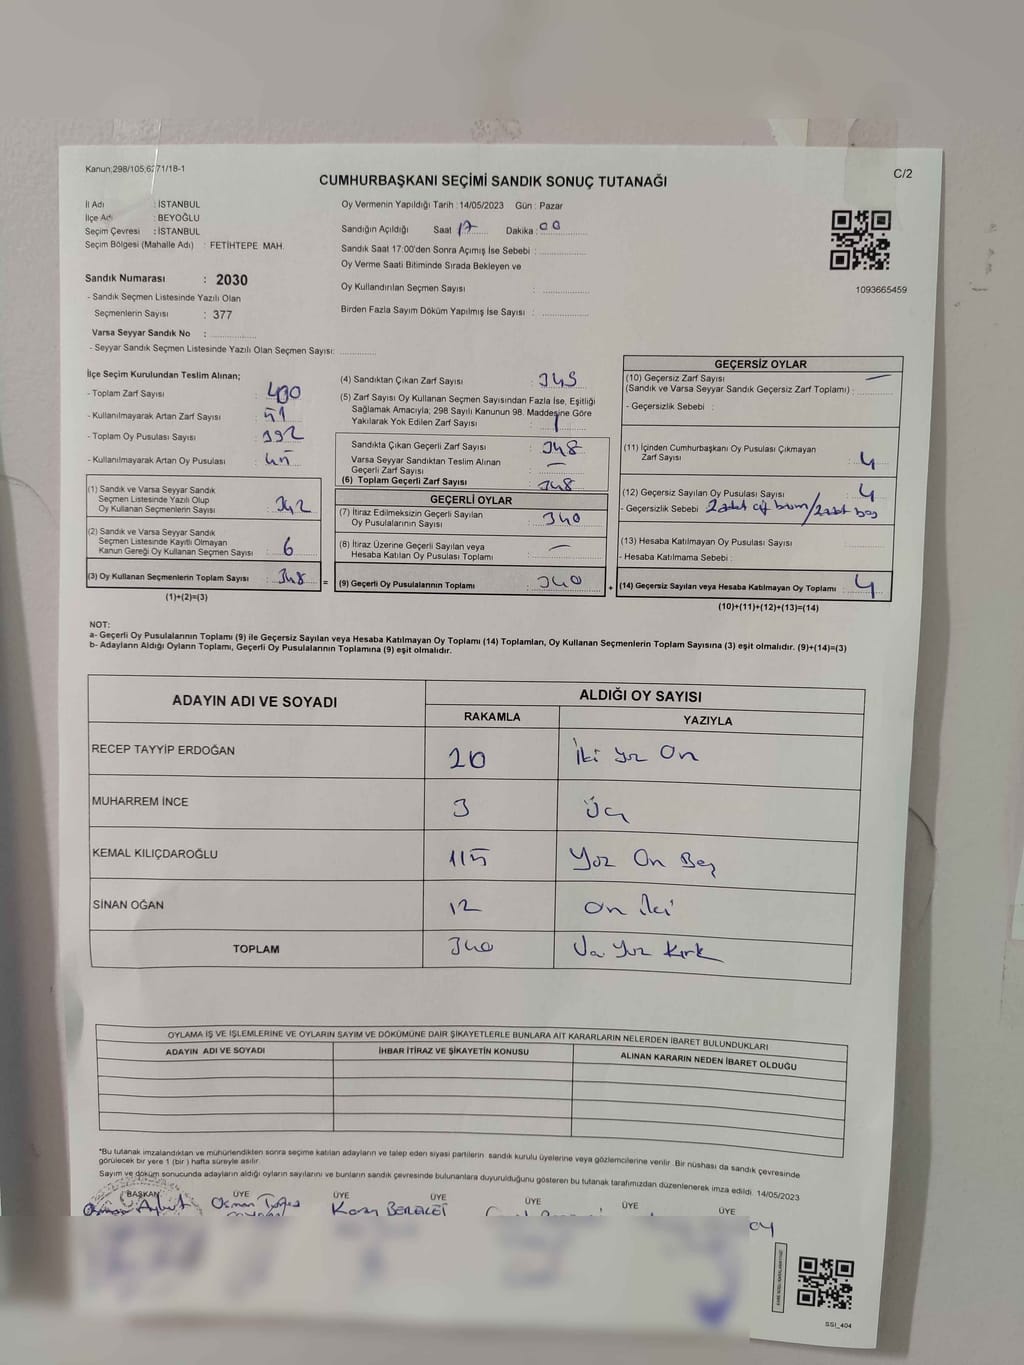 Kanun;298/105;6271/18-1
C/2
CUMHURBAŞKANI SEÇİMİ SANDIK SONUÇ TUTANAĞI
İl Adı : İSTANBUL
İlçe Adı : BEYOĞLU
Seçim Çevresi : İSTANBUL
Seçim Bölgesi (Mahalle Adı) : FETİHTEPE MAH.
Oy Vermenin Yapıldığı Tarih : 14/05/2023 Gün : Pazar
Sandığın Açıldığı Saat 17 Dakika : 00
Sandık Saat 17:00'den Sonra Açımış İse Sebebi :
Oy Verme Saati Bitiminde Sırada Bekleyen ve
Oy Kullandırılan Seçmen Sayısı :
Birden Fazla Sayım Döküm Yapılmış İse Sayısı :
1093665459
Sandık Numarası : 2030
- Sandık Seçmen Listesinde Yazılı Olan
Seçmenlerin Sayısı : 377
Varsa Seyyar Sandık No :
- Seyyar Sandık Seçmen Listesinde Yazılı Olan Seçmen Sayısı:
İlçe Seçim Kurulundan Teslim Alınan;
- Toplam Zarf Sayısı : 400
- Kullanılmayarak Artan Zarf Sayısı : 51
- Toplam Oy Pusulası Sayısı : 392
- Kullanılmayarak Artan Oy Pusulası : 45
(1) Sandık ve Varsa Seyyar Sandık
Seçmen Listesinde Yazılı Olup
Oy Kullanan Seçmenlerin Sayısı : 342
(2) Sandık ve Varsa Seyyar Sandık
Seçmen Listesinde Kayıtlı Olmayan
Kanun Gereği Oy Kullanan Seçmen Sayısı : 6
(3) Oy Kullanan Seçmenlerin Toplam Sayısı : 348
(1)+(2)=(3)
(4) Sandıktan Çıkan Zarf Sayısı : 349
(5) Zarf Sayısı Oy Kullanan Seçmen Sayısından Fazla İse, Eşitliği
Sağlamak Amacıyla; 298 Sayılı Kanunun 98. Maddesine Göre
Yakılarak Yok Edilen Zarf Sayısı : 1
Sandıkta Çıkan Geçerli Zarf Sayısı : 348
Varsa Seyyar Sandıktan Teslim Alınan
Geçerli Zarf Sayısı : —
(6) Toplam Geçerli Zarf Sayısı : 348
GEÇERLİ OYLAR
(7) İtiraz Edilmeksizin Geçerli Sayılan
Oy Pusulalarının Sayısı : 340
(8) İtiraz Üzerine Geçerli Sayılan veya
Hesaba Katılan Oy Pusulası Toplamı : —
= (9) Geçerli Oy Pusulalarının Toplamı : 340
GEÇERSİZ OYLAR
(10) Geçersiz Zarf Sayısı —
(Sandık ve Varsa Seyyar Sandık Geçersiz Zarf Toplamı) :
- Geçersizlik Sebebi :
(11) İçinden Cumhurbaşkanı Oy Pusulası Çıkmayan
Zarf Sayısı : 4
(12) Geçersiz Sayılan Oy Pusulası Sayısı : 4
- Geçersizlik Sebebi 2 adet / 2 adet boş
(13) Hesaba Katılmayan Oy Pusulası Sayısı :
- Hesaba Katılmama Sebebi :
+ (14) Geçersiz Sayılan veya Hesaba Katılmayan Oy Toplamı : 4
(10)+(11)+(12)+(13)=(14)
NOT:
a- Geçerli Oy Pusulalarının Toplamı (9) ile Geçersiz Sayılan veya Hesaba Katılmayan Oy Toplamı (14) Toplamları, Oy Kullanan Seçmenlerin Toplam Sayısına (3) eşit olmalıdır. (9)+(14)=(3)
b- Adayların Aldığı Oyların Toplamı, Geçerli Oy Pusulalarının Toplamına (9) eşit olmalıdır.
ADAYIN ADI VE SOYADI
ALDIĞI OY SAYISI
RAKAMLA YAZIYLA
RECEP TAYYİP ERDOĞAN 210 İki yüz On
MUHARREM İNCE 3 Üç
KEMAL KILIÇDAROĞLU 115 Yüz On Beş
SİNAN OĞAN 12 On İki
TOPLAM 340 Üç Yüz Kırk
OYLAMA İŞ VE İŞLEMLERİNE VE OYLARIN SAYIM VE DÖKÜMÜNE DAİR ŞİKAYETLERLE BUNLARA AİT KARARLARIN NELERDEN İBARET BULUNDUKLARI
ADAYIN ADI VE SOYADI İHBAR İTİRAZ VE ŞİKAYETİN KONUSU ALINAN KARARIN NEDEN İBARET OLDUĞU
*Bu tutanak imzalandıktan ve mühürlendikten sonra seçime katılan adayların ve talep eden siyasi partilerin sandık kurulu üyelerine veya gözlemcilerine verilir. Bir nüshası da sandık çevresinde
görülecek bir yere 1 (bir) hafta süreyle asılır.
Sayım ve döküm sonucunda adayların aldığı oyların sayılarını ve bunların sandık çevresinde bulunanlara duyurulduğunu gösteren bu tutanak tarafımızdan düzenlenerek imza edildi. 14/05/2023
BAŞKAN ÜYE ÜYE ÜYE ÜYE ÜYE ÜYE
Osman Osman
SSI_404